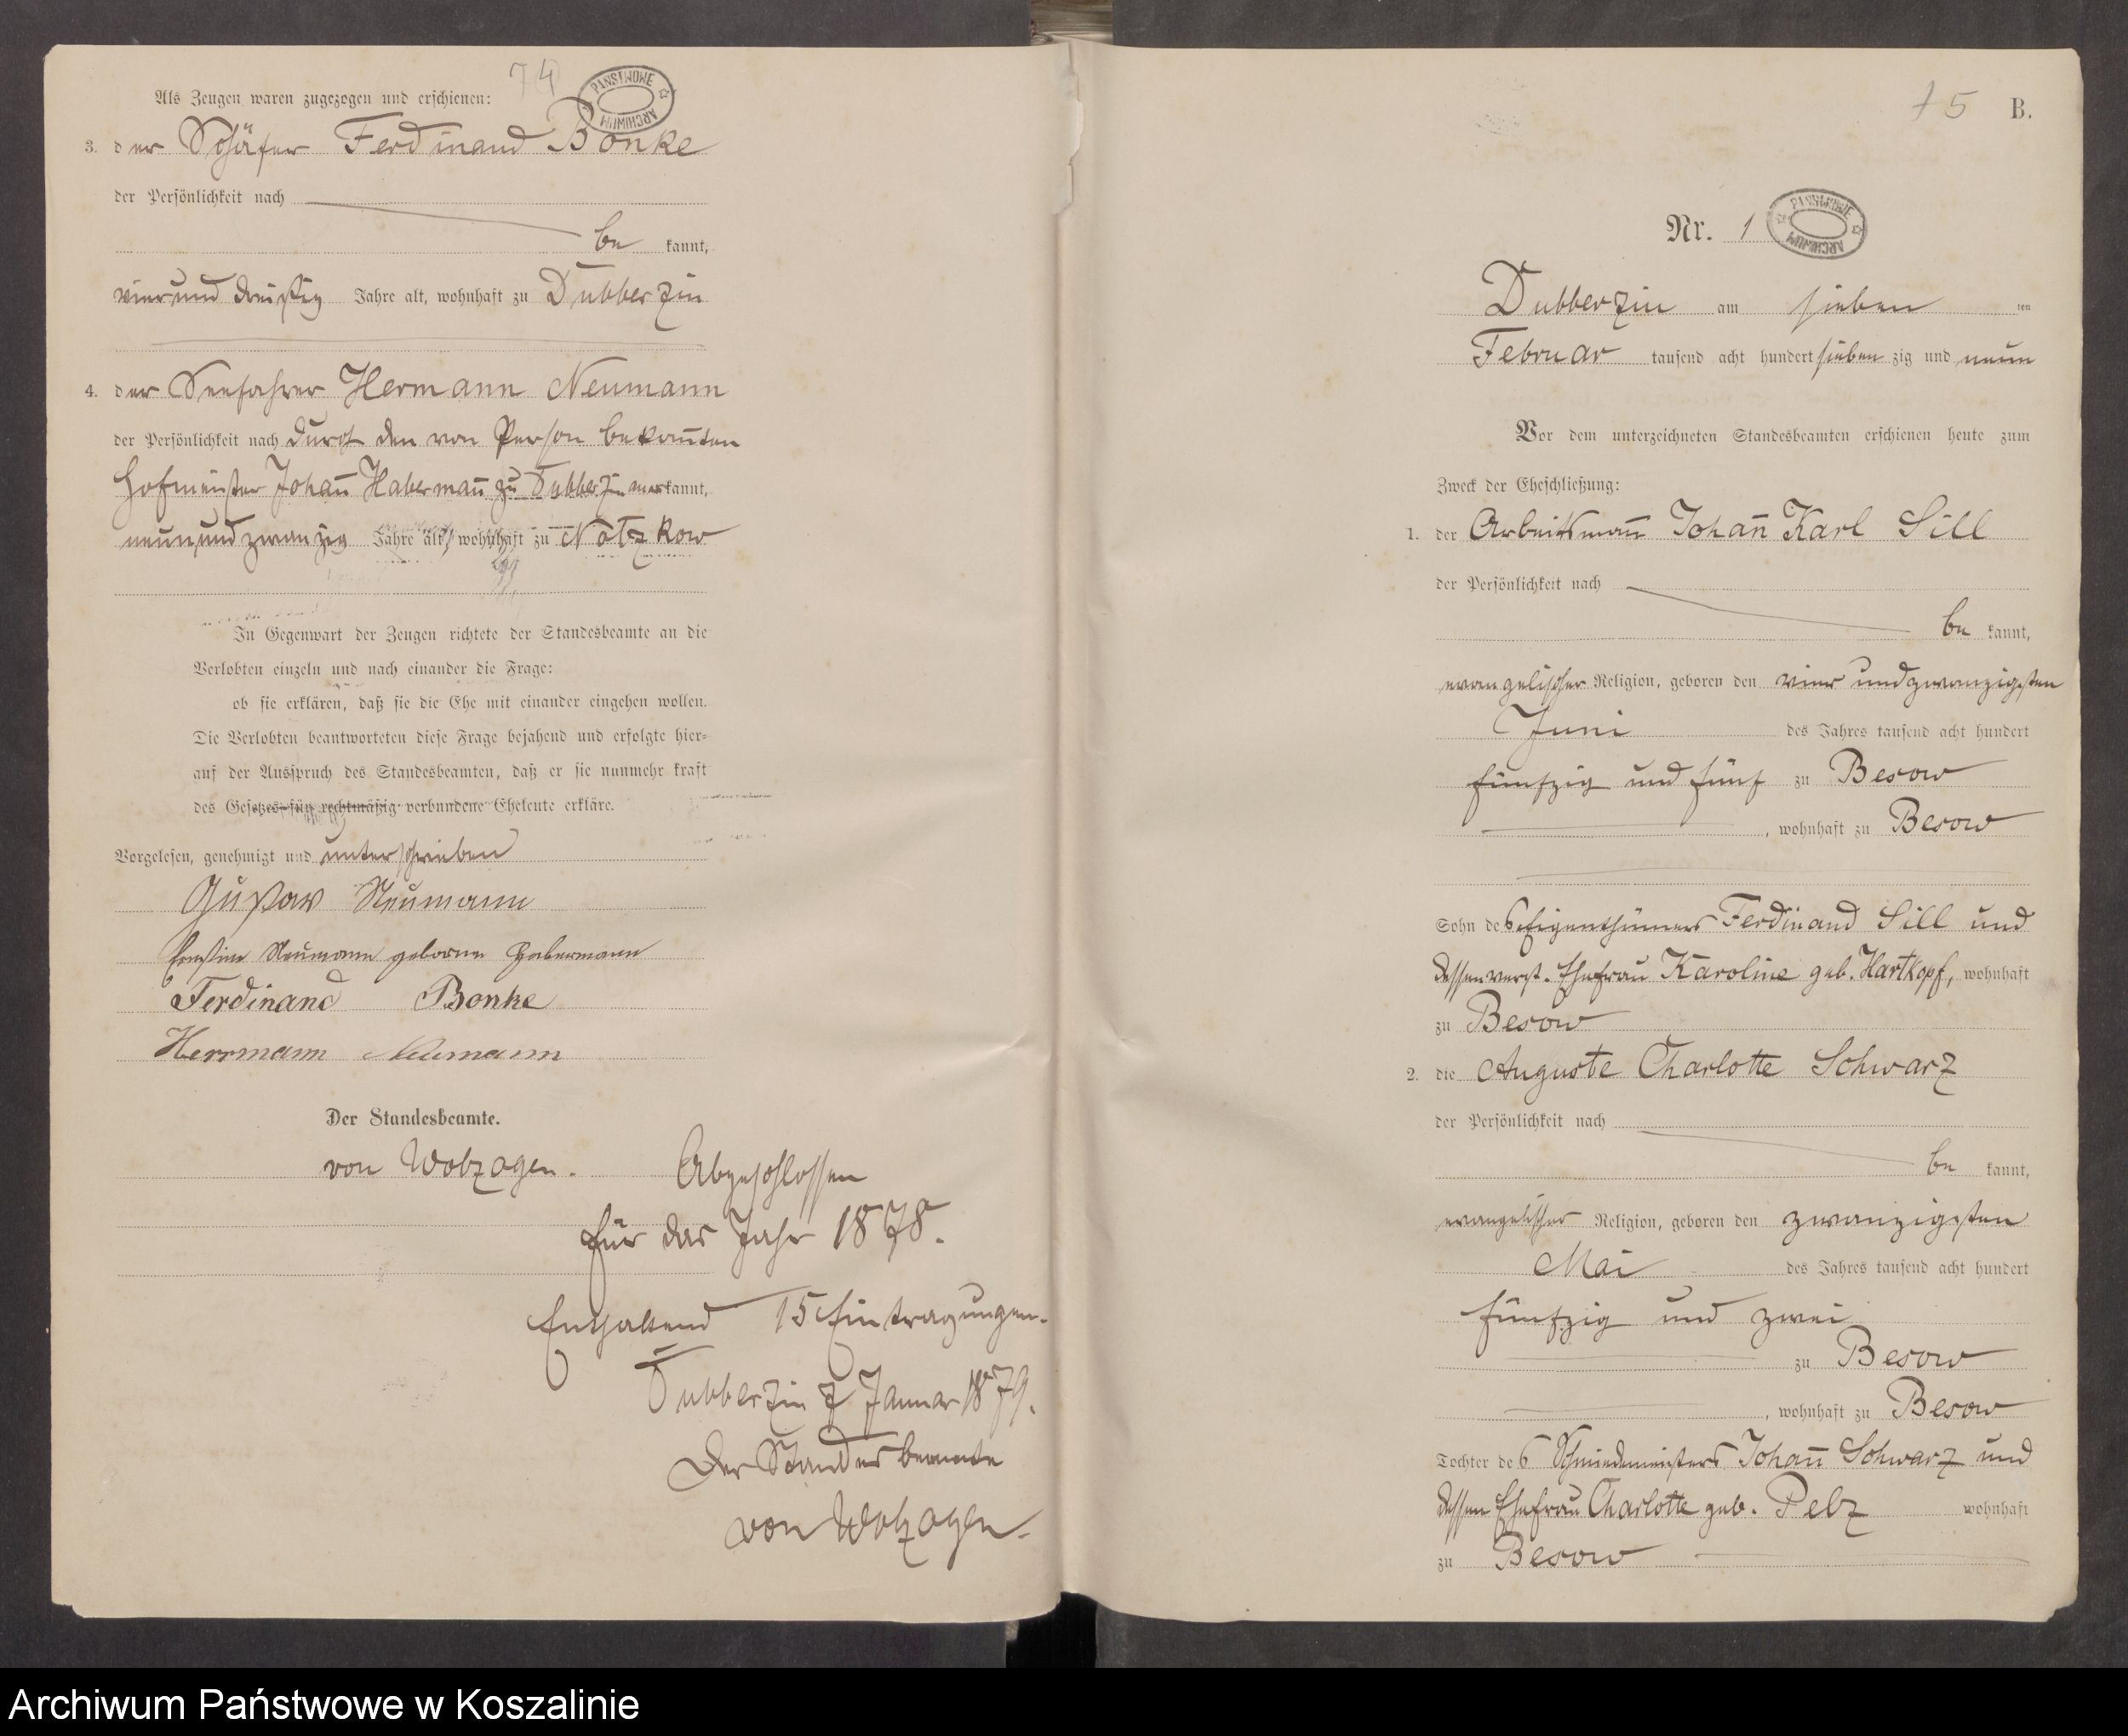 74
PAŃSTWOWE ARCHIWUM
Als Zeugen waren zugezogen und erschienen:
3. der Schäfer Ferdinand Bonke
der Persönlichkeit nach
be kannt,
vierund dreißig Jahre alt, wohnhaft zu Dubberzin
4. der Seefahrer Hermann Neumann
der Persönlichkeit nach durch den von Person bekan̄ten
Hofmeister Johan̄ Haberman̄ zu Dubberzin anerkannt,
neunundzwanzig Jahre alt, wohnhaft zu Notzkow
In Gegenwart der Zeugen richtete der Standesbeamte an die
Verlobten einzeln und nach einander die Frage:
ob sie erklären, daß sie die Ehe mit einander eingehen wollen.
Die Verlobten beantworteten diese Frage bejahend und erfolgte hier-
auf der Ausspruch des Standesbeamten, daß er sie nunmehr kraft
des Gesetzes für rechtmäßig verbundene Eheleute erkläre.
Vorgelesen, genehmigt und unterschrieben
Gustav Neumann
Ernstine Neumann geborne Habermann
Ferdinand Bonke
Herrmann Neumann
Der Standesbeamte.
von Wolzogen.
Abgeschlossen
für das Jahr 1878.
Enthaltend 15 Eintragungen.
Dubberzin 7 Januar 1879.
Der Standesbeamte
von Wolzogen.
75 B.
Nr. 1
PAŃSTWOWE ARCHIWUM
Dubberzin am sieben ten
Februar tausend acht hundert sieben zig und neun
Vor dem unterzeichneten Standesbeamten erschienen heute zum
Zweck der Eheschließung:
1. der Arbeitsman̄ Johan̄ Karl Sill
der Persönlichkeit nach
be kannt,
evangelischer Religion, geboren den vier undzwanzigsten
Juni des Jahres tausend acht hundert
fünfzig und fünf zu Besow
, wohnhaft zu Besow
Sohn des Eigenthümers Ferdinand Sill und
dessen verst. Ehefrau Karoline geb. Hartkopf, wohnhaft
zu Besow
2. die Auguste Charlotte Schwarz
der Persönlichkeit nach
be kannt,
evangelischer Religion, geboren den zwanzigsten
Mai des Jahres tausend acht hundert
fünfzig und zwei
zu Besow
, wohnhaft zu Besow
Tochter des Schmiedemeisters Johan̄ Schwarz und
dessen Ehefrau Charlotte geb. Pelz wohnhaft
zu Besow
Archiwum Państwowe w Koszalinie